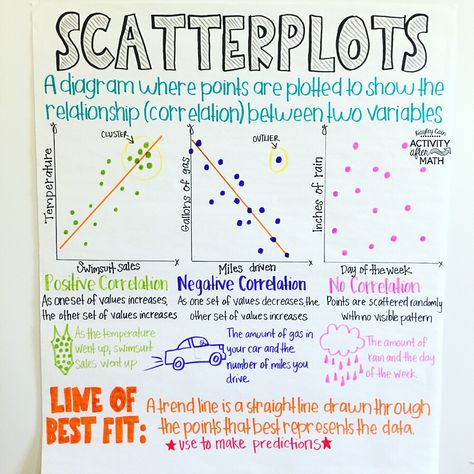 SCATTERPLOTS
A diagram where points are plotted to show the
relationship (correlation) between two variables
Kayley Cain
ACTIVITY
after
MATH
CLUSTER
Temperature
Swimsuit sales
OUTLIER
Gallons of gas
Miles driven
Inches of rain
Day of the week
Positive Correlation
As one set of values increases,
the other set of values increases
Negative Correlation
As one set of values decreases, the
other set of values increases
No Correlation
Points are scattered randomly
with no visible pattern
As the temperature
went up, swimsuit
sales went up
The amount of gas in
your car and the
number of miles you
drive.
The amount of
rain and the day
of the week.
LINE OF
BEST FIT:
A trend line is a straight line drawn through
the points that best represents the data.
★use to make predictions★